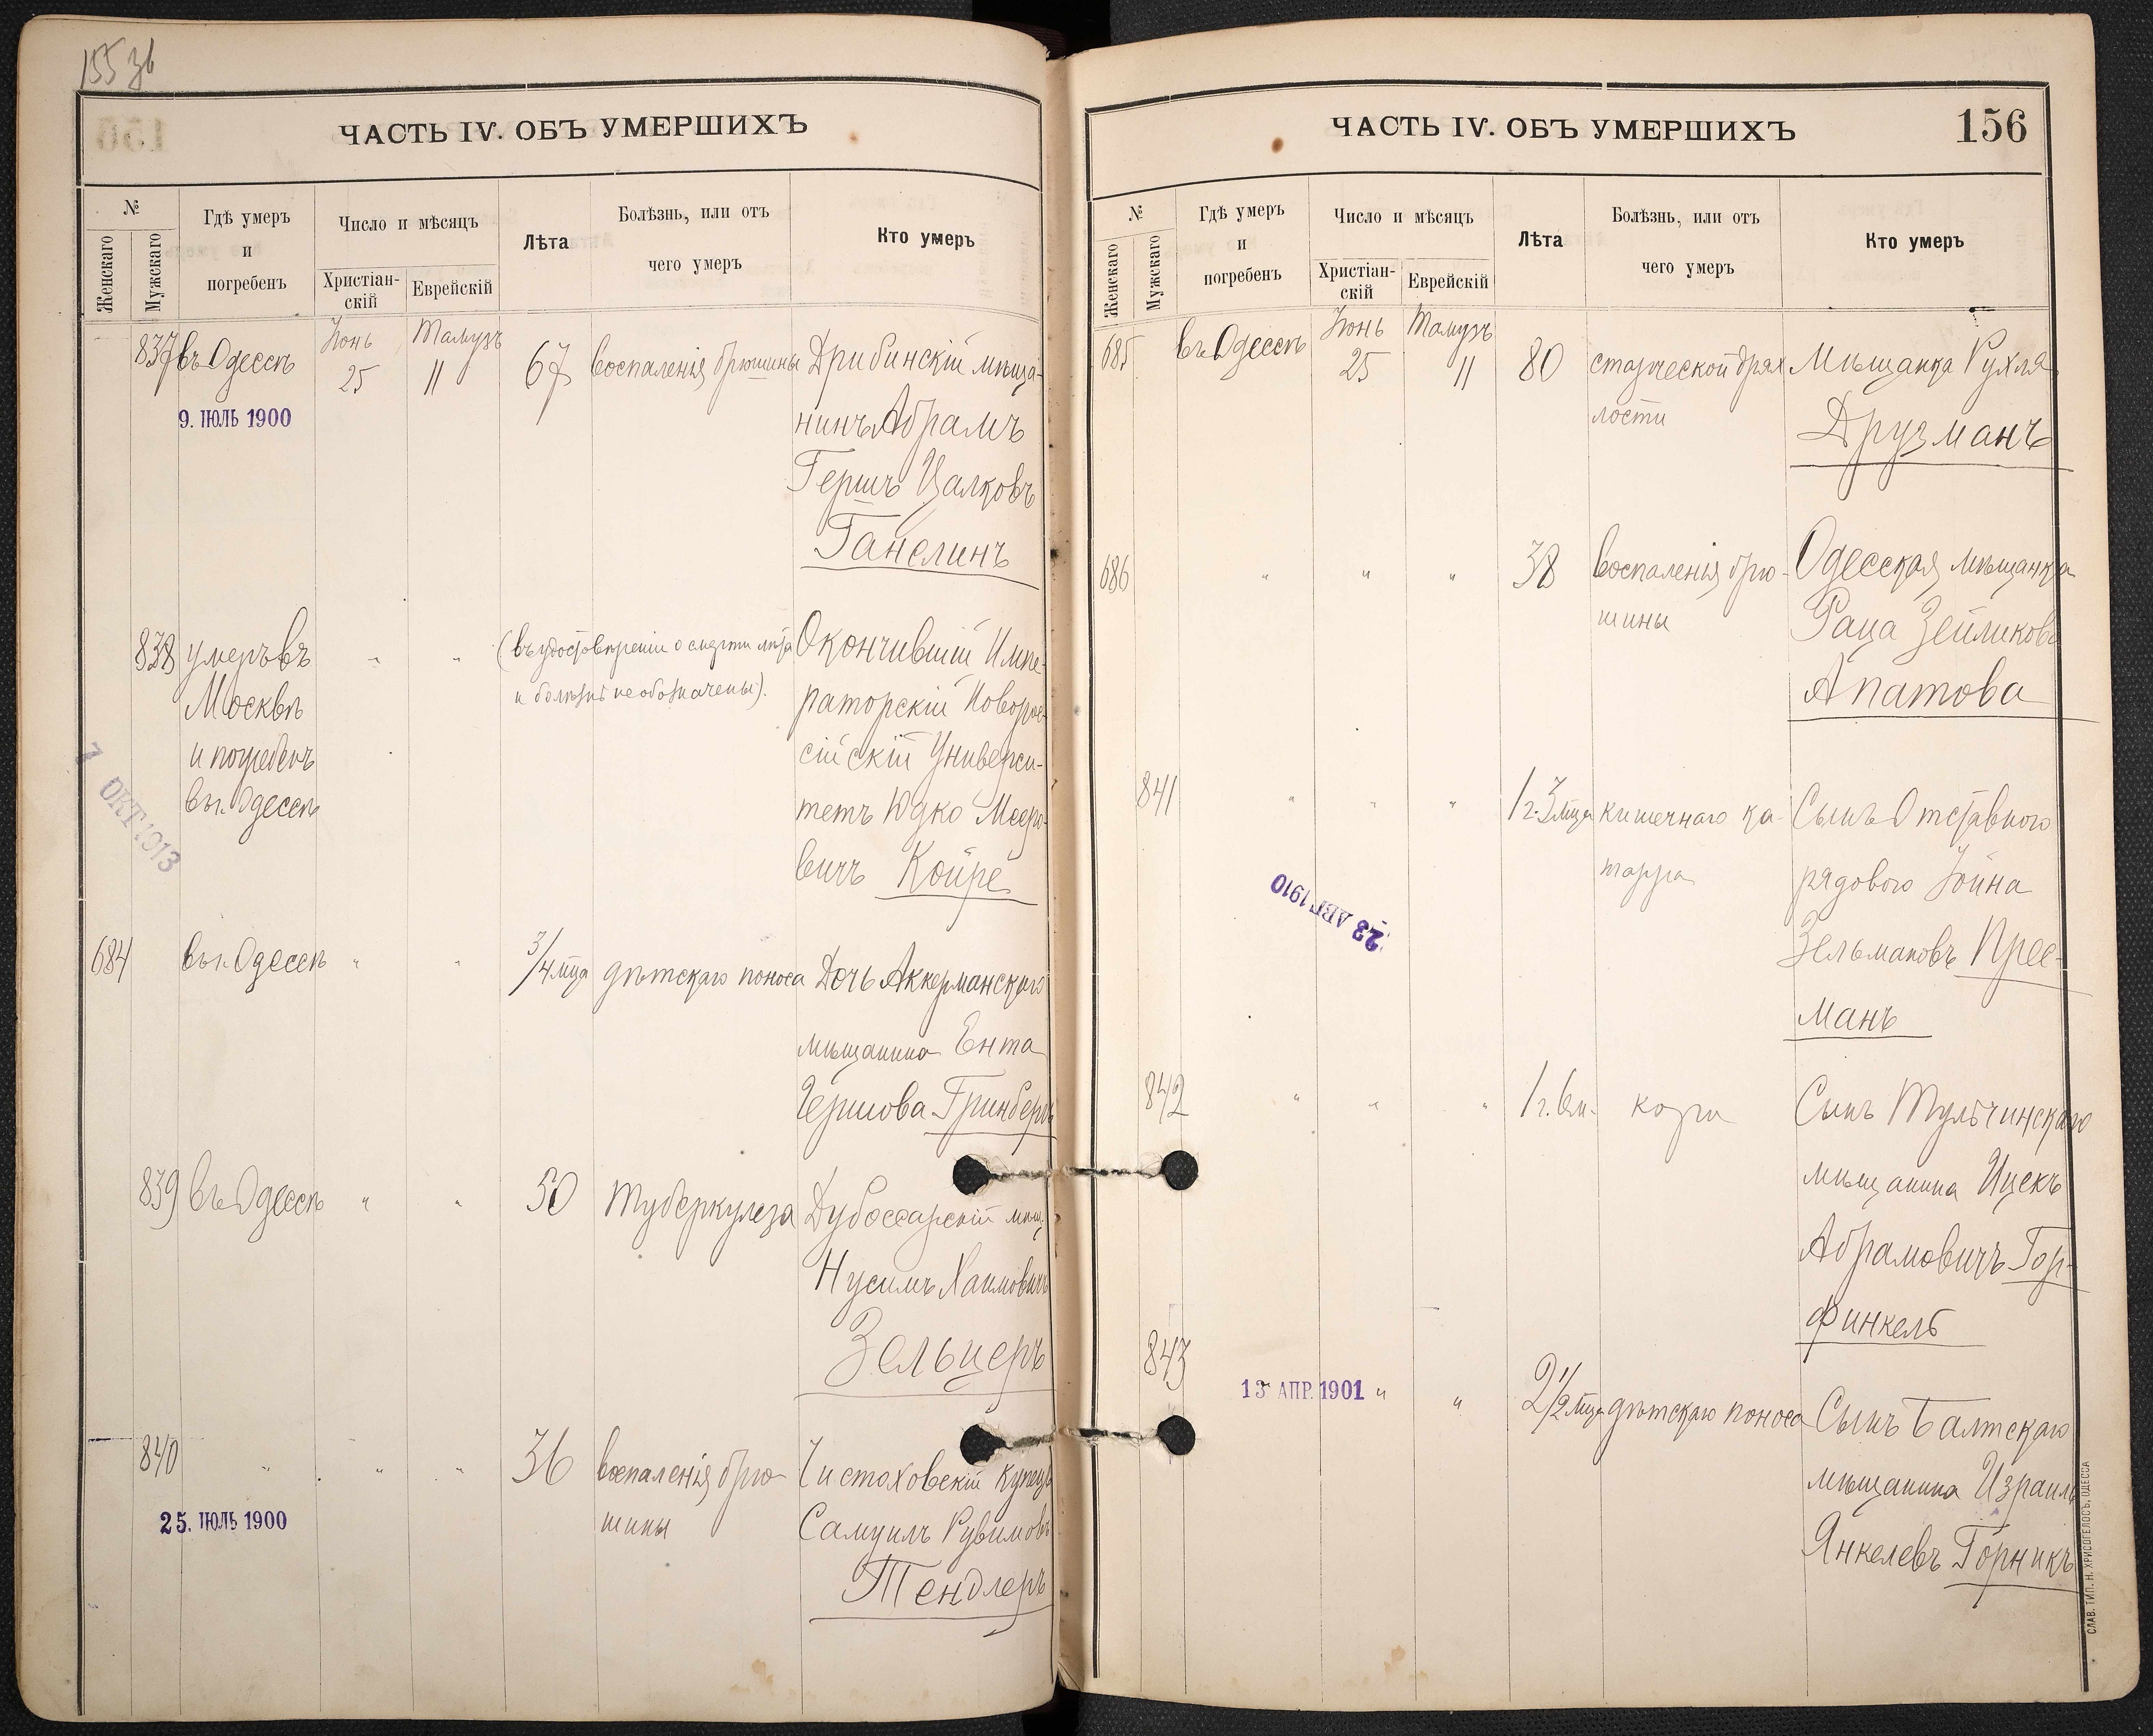 155 зв
ЧАСТЬ IV. ОБЪ УМЕРШИХЪ
№
Женскаго
Мужскаго
Гдѣ умеръ
и
погребенъ
Число и мѣсяцъ
Христіан-
скій
Еврейскій
Лѣта
Болѣзнь, или отъ
чего умеръ
Кто умеръ
837 въ Одессѣ Іюнь 25 Тамузъ 11 67 воспаленія брюшины Дрибинскій мѣща-
нинъ Абрамъ
Гершъ Цалковъ
Ганелинъ
9. ІЮЛЬ 1900
838 умеръ въ " " (въ удостовѣреніи о смерти лѣта Окончившій Импе-
Москвѣ и болѣзнь не обозначены). раторскій Новорос-
и погребенъ сійскій Универси-
въ Одессѣ тетъ Юдко Меера-
вичъ Койре
7 ОКТ. 1913
684 въ Одессѣ " " 3/4 мца дѣтскаго поноса Дочь Аккерманскаго
мѣщанина Ента
Гершова Гринбергъ
839 въ Одессѣ " " 50 туберкулеза Дубоссарскій мѣщ.
Нусимъ Хаимовичъ
Зельцеръ
840 " " " 36 воспаленія брю- Чистоховскій купецъ
шины Самуилъ Рувимовъ
Тендлеръ
25. ІЮЛЬ 1900
ЧАСТЬ IV. ОБЪ УМЕРШИХЪ
156
№
Женскаго
Мужскаго
Гдѣ умеръ
и
погребенъ
Число и мѣсяцъ
Христіан-
скій
Еврейскій
Лѣта
Болѣзнь, или отъ
чего умеръ
Кто умеръ
685 въ Одессѣ Іюнь 25 Тамузъ 11 80 старческой дрях Мѣщанка Рухля
лости Друзманъ
686 " " " 38 воспаленія брю- Одесская мѣщанка
шины Раца Зейликова
Апатова
841 " " " 1 г. 3 мца кишечнаго ка- Сынъ Отставного
тарра рядового Іойна
Зельмановъ Прес-
манъ
23 АВГ 1910
842 " " " 1 г. 6 м. кори Сынъ Тульчинскаго
мѣщанина Ицекъ
Абрамовичъ Гор-
финкель
843 13 АПР. 1901 " " 2 1/2 мца дѣтскаго поноса Сынъ Балтскаго
мѣщанина Израиль
Янкелевъ Горникъ
СЛАВ. ТИП. Н. ХРИСОГЕЛОСЪ, ОДЕССА